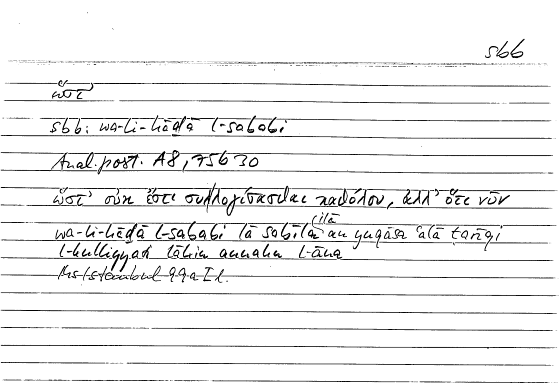 sbb
ὥστ'
sbb: wa-li-hāḏā l-sababi
Anal. post. A8, 75b30
ὥστ' οὐκ ἔστι συλλογίσασθαι καθόλου, ἀλλ' ὅτι νῦν
wa-li-hāḏā l-sababi lā sabīla ilā an yuqāsa ʿalā ṭarīqi
l-kulliyyah lākin annahu l-āna
Ms Istanbul 99a